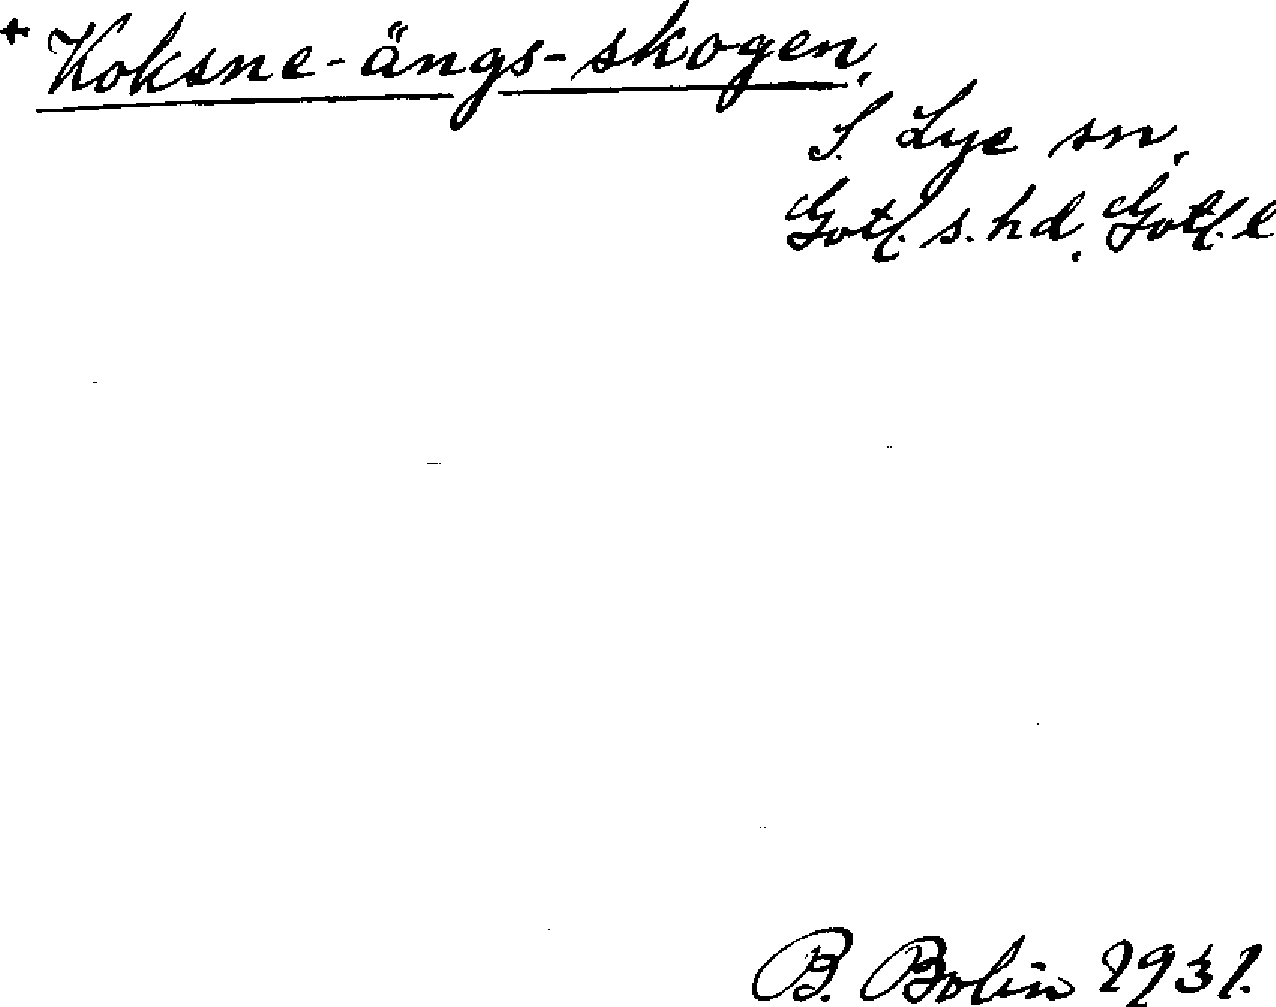 + Koksne-ängs-skogen,
S. Lye sn,
Gotl. s. hd, Gotl. l
B. Bolin 1931.